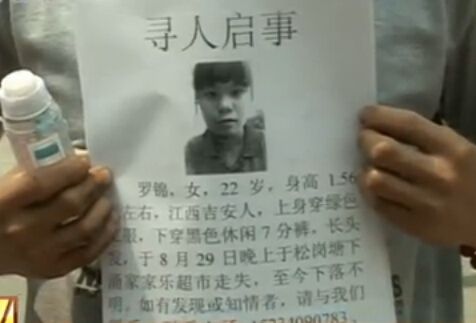 寻人启事
罗锦，女，22 岁，身高 1.56
左右，江西吉安人，上身穿绿色
服，下穿黑色休闲 7 分裤，长头
发，于 8 月 29 日晚上于松岗塘下
涌家家乐超市走失，至今下落不
明，如有发现或知情者，请与我们